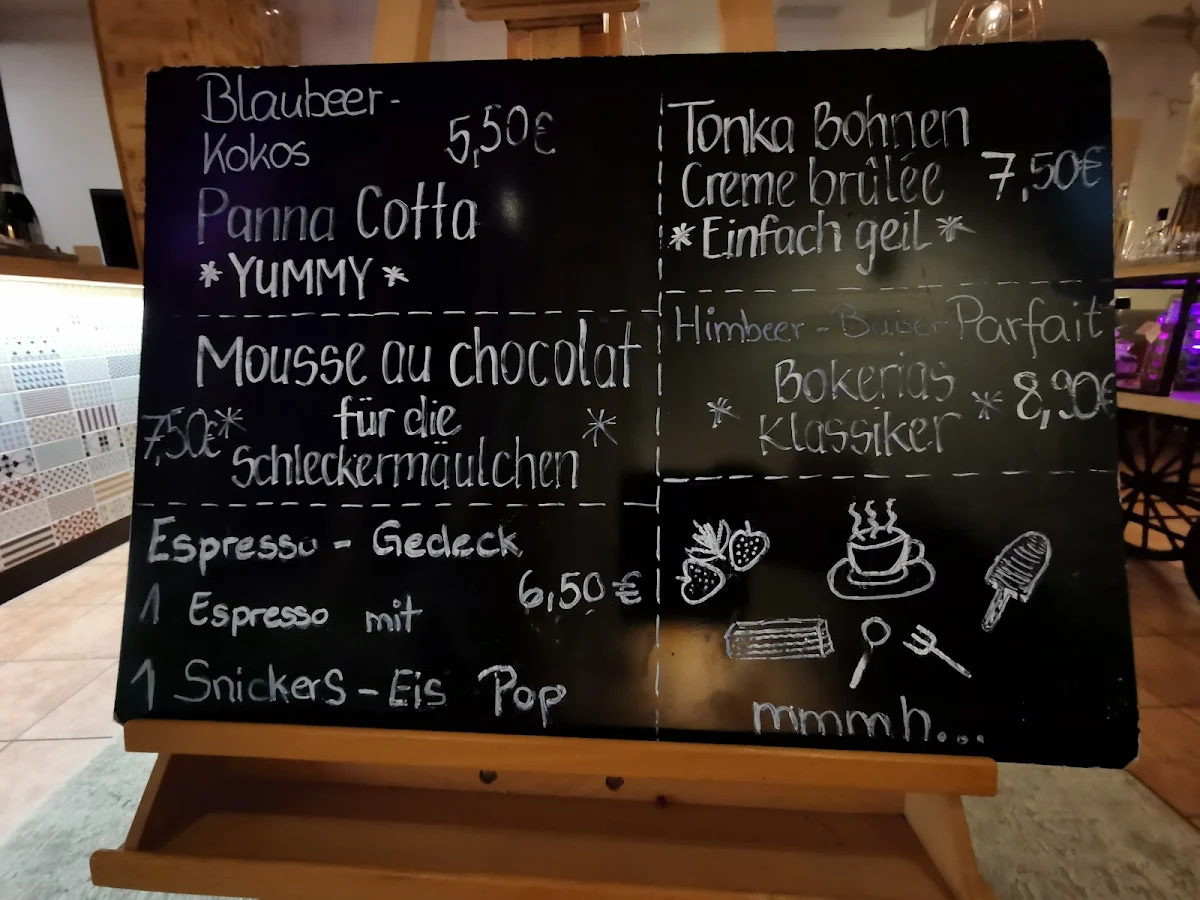 Blaubeer-
Kokos 5,50€
Panna Cotta
*YUMMY*
Mousse au chocolat
für die
7,50€ * Schleckermäulchen *
Espresso - Gedeck
6,50€
1 Espresso mit
1 Snickers-Eis Pop
Tonka Bohnen
Creme brûlée 7,50€
*Einfach geil*
Himbeer-Baiser Parfait
* Bokerias * 8,90€
Klassiker
mmmh...